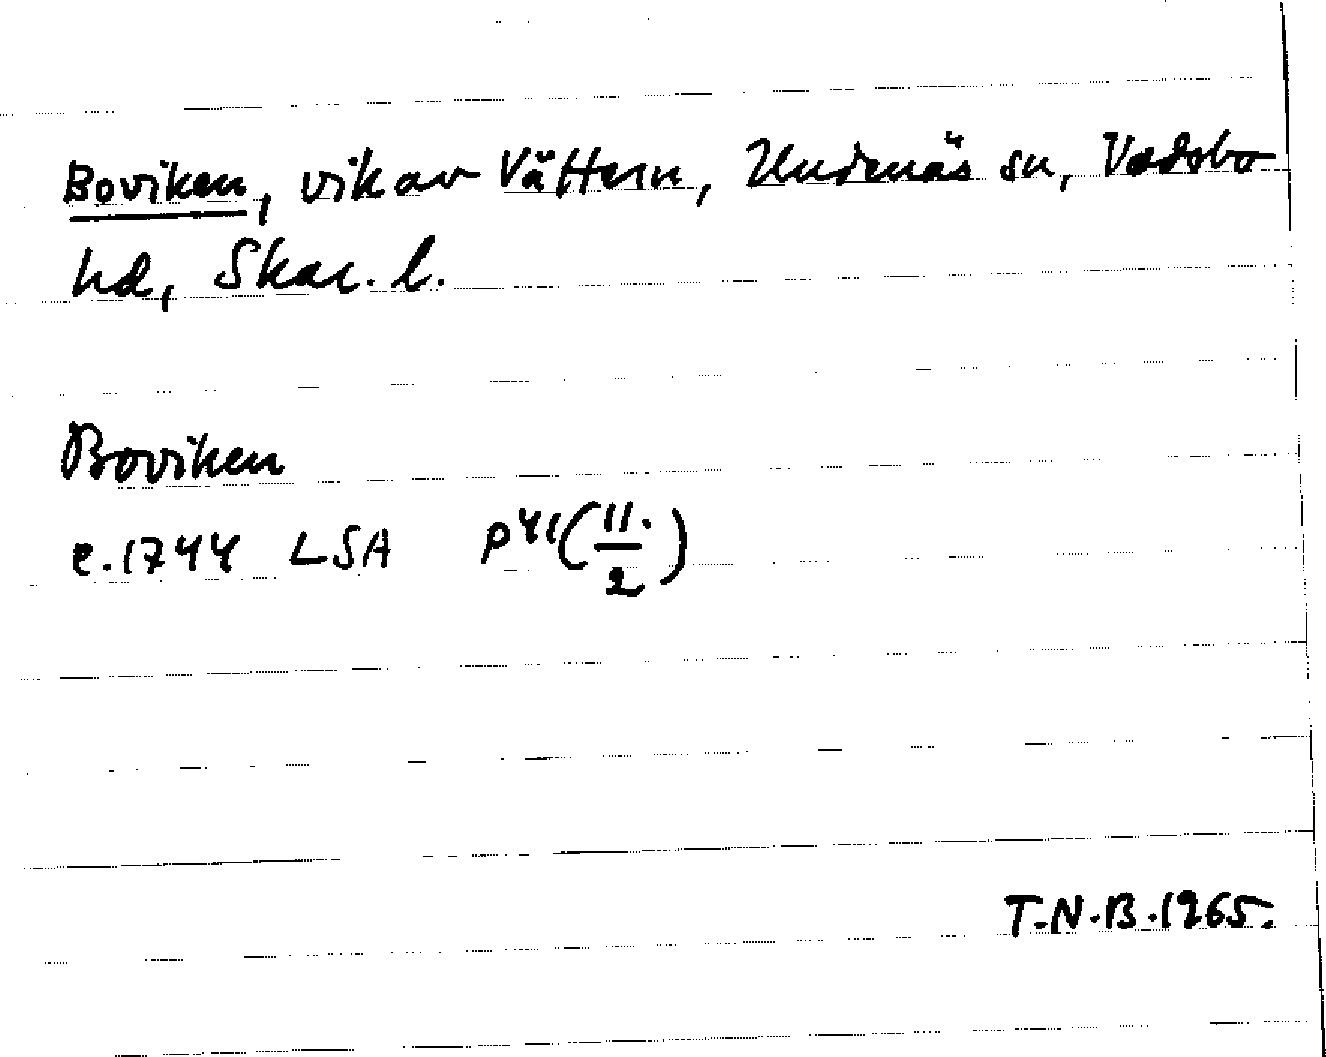 Boviken, vik av Vättern, Undenäs sn, Vadsbo
hd, Skar. l.
Boviken
c. 1744 LSA P41(11./2)
T.N.B. 1965.